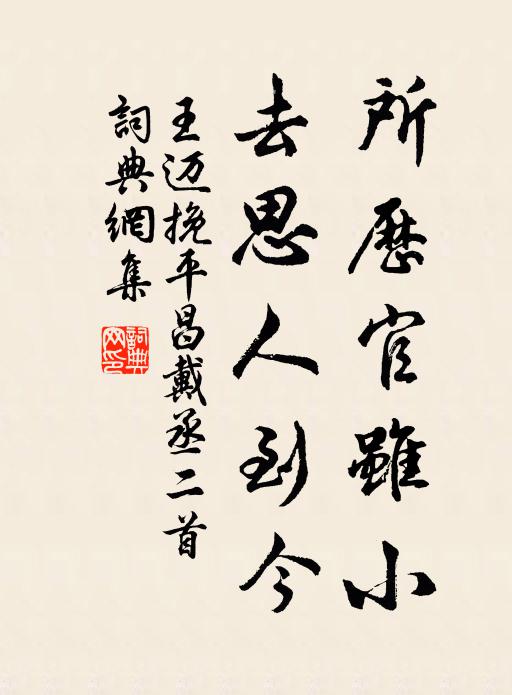 所歷官雖小
去思人到今
王迈挽平昌戴丞二首
詞典網集
詞典網印